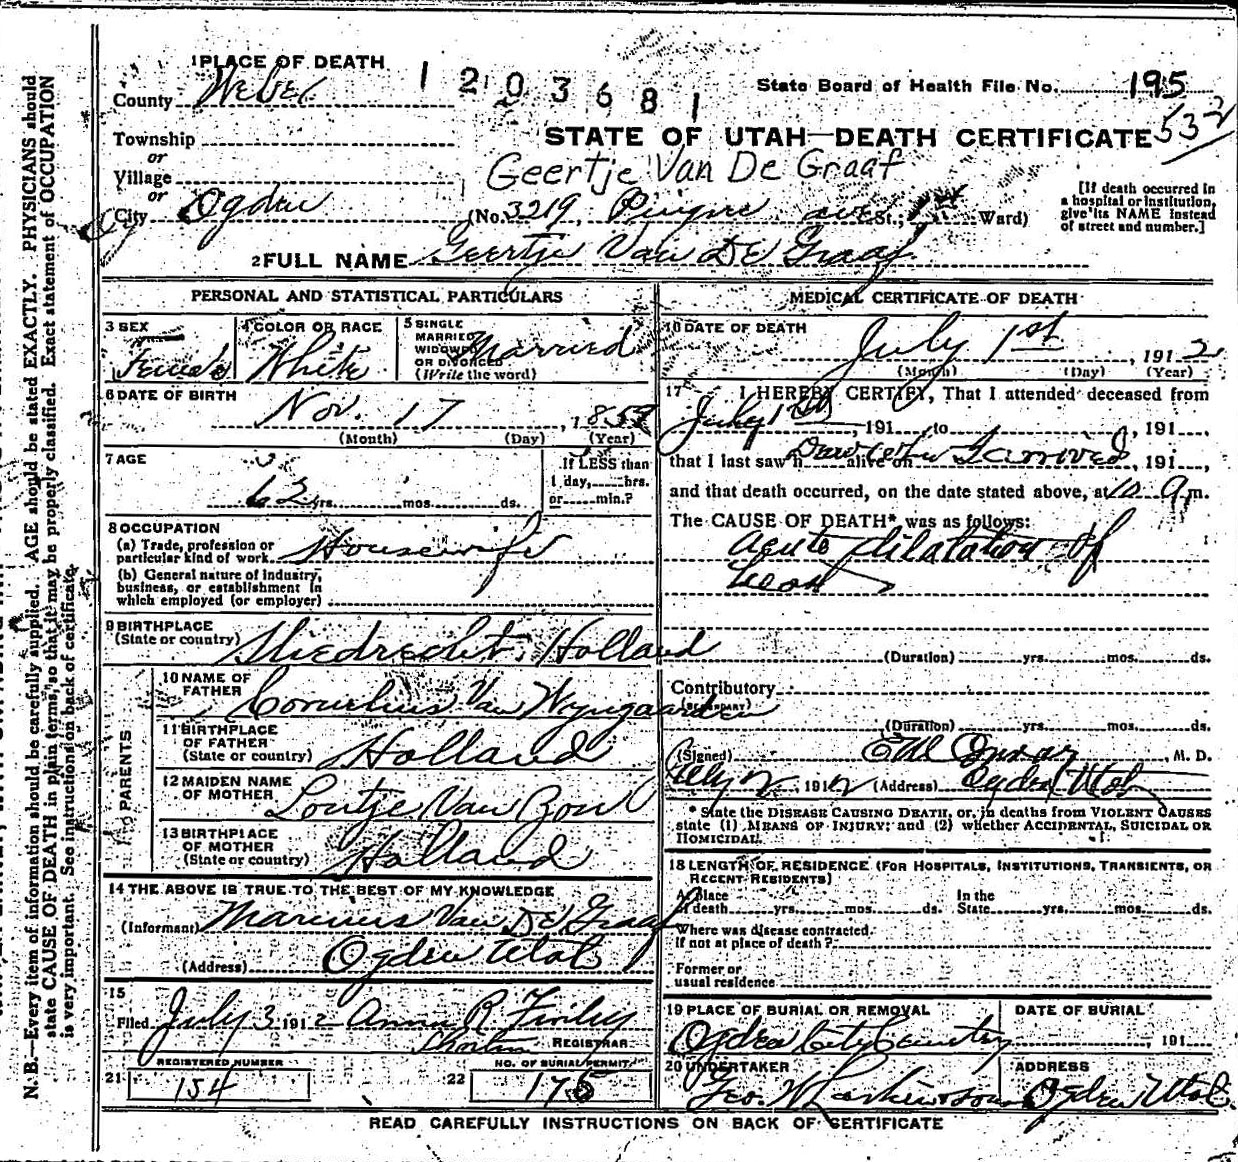 1 PLACE OF DEATH
1 2 0 3 6 8 1
State Board of Health File No. 195
County Weber
532
STATE OF UTAH—DEATH CERTIFICATE
Township
or
Village
Geertje Van De Graaf
or
City Ogden (No. 3219 Ave St., Ward)
[If death occurred in
a hospital or institution,
give its NAME instead
of street and number.]
2 FULL NAME Geertje Van De Graaf
PERSONAL AND STATISTICAL PARTICULARS
3 SEX
Female
4 COLOR OR RACE
White
5 SINGLE
MARRIED
WIDOWED
OR DIVORCED
(Write the word)
Married
6 DATE OF BIRTH
Nov. 17, 185
(Month) (Day) (Year)
7 AGE
62 yrs. mos. ds.
If LESS than
1 day, hrs.
or min.?
8 OCCUPATION
(a) Trade, profession or
particular kind of work Housewife
(b) General nature of industry,
business, or establishment in
which employed (or employer)
9 BIRTHPLACE
(State or country) Sliedrecht, Holland
PARENTS
10 NAME OF
FATHER Cornelius Van Wyngaarden
11 BIRTHPLACE
OF FATHER
(State or country) Holland
12 MAIDEN NAME
OF MOTHER Van
13 BIRTHPLACE
OF MOTHER
(State or country) Holland
14 THE ABOVE IS TRUE TO THE BEST OF MY KNOWLEDGE
(Informant) Marinus Van De Graaf
(Address) Ogden Utah
15
Filed July 3 1912 Anna R Finley
REGISTRAR
REGISTERED NUMBER
21 154
NO. OF BURIAL PERMIT
22 175
MEDICAL CERTIFICATE OF DEATH
16 DATE OF DEATH
July 1st, 1912
(Month) (Day) (Year)
17 I HEREBY CERTIFY, That I attended deceased from
July 1st, 191 to , 191
that I last saw h alive on , 191
Dead when I arrived
and that death occurred, on the date stated above, at m.
The CAUSE OF DEATH* was as follows:
Acute Dilatation of
Heart
(Duration) yrs. mos. ds.
Contributory
(SECONDARY)
(Duration) yrs. mos. ds.
(Signed) , M. D.
July 2, 1912 (Address) Ogden Utah
* State the DISEASE CAUSING DEATH, or, in deaths from VIOLENT CAUSES
state (1) MEANS OF INJURY; and (2) whether ACCIDENTAL, SUICIDAL OR
HOMICIDAL.
18 LENGTH OF RESIDENCE (FOR HOSPITALS, INSTITUTIONS, TRANSIENTS, OR
RECENT RESIDENTS)
At place
of death yrs. mos. ds.
In the
State yrs. mos. ds.
Where was disease contracted
if not at place of death?
Former or
usual residence
19 PLACE OF BURIAL OR REMOVAL
Ogden City Cemetery
DATE OF BURIAL
191
20 UNDERTAKER
Geo. W Larkin & Sons
ADDRESS
Ogden Utah
READ CAREFULLY INSTRUCTIONS ON BACK OF CERTIFICATE
N. B.—Every item of information should be carefully supplied. AGE should be stated EXACTLY. PHYSICIANS should
state CAUSE OF DEATH in plain terms, so that it may be properly classified. Exact statement of OCCUPATION
is very important. See instructions on back of certificate.